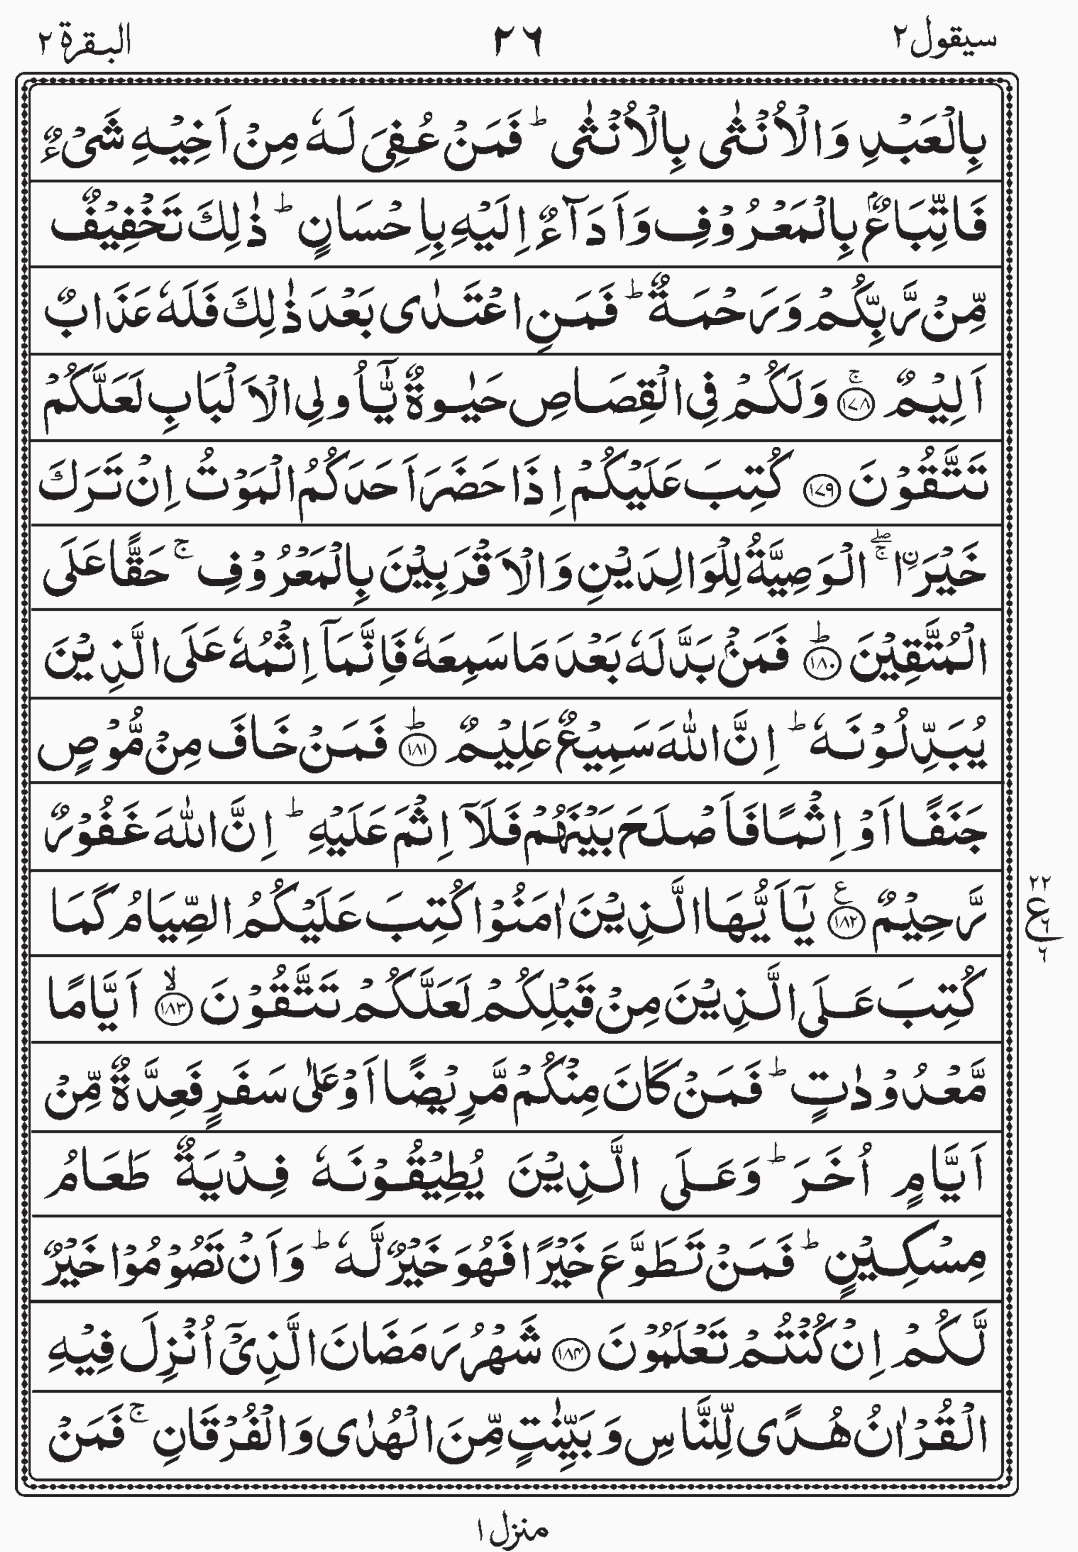 سیقول ٢
٢٦
البقرة ٢
بِالْعَبْدِ وَالْاُنْثٰى بِالْاُنْثٰى ؕ فَمَنْ عُفِىَ لَهٗ مِنْ اَخِيْهِ شَىْءٌ
فَاتِّبَاعٌۢ بِالْمَعْرُوْفِ وَاَدَآءٌ اِلَيْهِ بِاِحْسَانٍ ؕ ذٰلِكَ تَخْفِيْفٌ
مِّنْ رَّبِّكُمْ وَرَحْمَةٌ ؕ فَمَنِ اعْتَدٰى بَعْدَ ذٰلِكَ فَلَهٗ عَذَابٌ
اَلِيْمٌ ۚ‏﴿۱۷۸﴾ وَلَكُمْ فِى الْقِصَاصِ حَيٰوةٌ يّٰٓاُولِى الْاَلْبَابِ لَعَلَّكُمْ
تَتَّقُوْنَ ﴿۱۷۹﴾ كُتِبَ عَلَيْكُمْ اِذَا حَضَرَ اَحَدَكُمُ الْمَوْتُ اِنْ تَرَكَ
خَيْرَ اۨ ۖۚ الْوَصِيَّةُ لِلْوَالِدَيْنِ وَالْاَقْرَبِيْنَ بِالْمَعْرُوْفِ ۚ حَقًّا عَلَى
الْمُتَّقِيْنَ ؕ‏﴿۱۸۰﴾ فَمَنْۢ بَدَّلَهٗ بَعْدَ مَا سَمِعَهٗ فَاِنَّمَآ اِثْمُهٗ عَلَى الَّذِيْنَ
يُبَدِّلُوْنَهٗ ؕ اِنَّ اللّٰهَ سَمِيْعٌ عَلِيْمٌ ؕ‏﴿۱۸۱﴾ فَمَنْ خَافَ مِنْ مُّوْصٍ
جَنَفًا اَوْ اِثْمًا فَاَصْلَحَ بَيْنَهُمْ فَلَآ اِثْمَ عَلَيْهِ ؕ اِنَّ اللّٰهَ غَفُوْرٌ
رَّحِيْمٌ ﴿۱۸۲﴾ ع يٰٓاَيُّهَا الَّذِيْنَ اٰمَنُوْا كُتِبَ عَلَيْكُمُ الصِّيَامُ كَمَا
٢٢
ع
٦
٦
كُتِبَ عَلَى الَّذِيْنَ مِنْ قَبْلِكُمْ لَعَلَّكُمْ تَتَّقُوْنَ ۙ‏﴿۱۸۳﴾ اَيَّامًا
مَّعْدُوْدٰتٍ ؕ فَمَنْ كَانَ مِنْكُمْ مَّرِيْضًا اَوْ عَلٰى سَفَرٍ فَعِدَّةٌ مِّنْ
اَيَّامٍ اُخَرَ ؕ وَعَلَى الَّذِيْنَ يُطِيْقُوْنَهٗ فِدْيَةٌ طَعَامُ
مِسْكِيْنٍ ؕ فَمَنْ تَطَوَّعَ خَيْرًا فَهُوَ خَيْرٌ لَّهٗ ؕ وَاَنْ تَصُوْمُوْا خَيْرٌ
لَّكُمْ اِنْ كُنْتُمْ تَعْلَمُوْنَ ﴿۱۸۴﴾ شَهْرُ رَمَضَانَ الَّذِىْٓ اُنْزِلَ فِيْهِ
الْقُرْاٰنُ هُدًى لِّلنَّاسِ وَبَيِّنٰتٍ مِّنَ الْهُدٰى وَالْفُرْقَانِ ۚ فَمَنْ
منزل ١